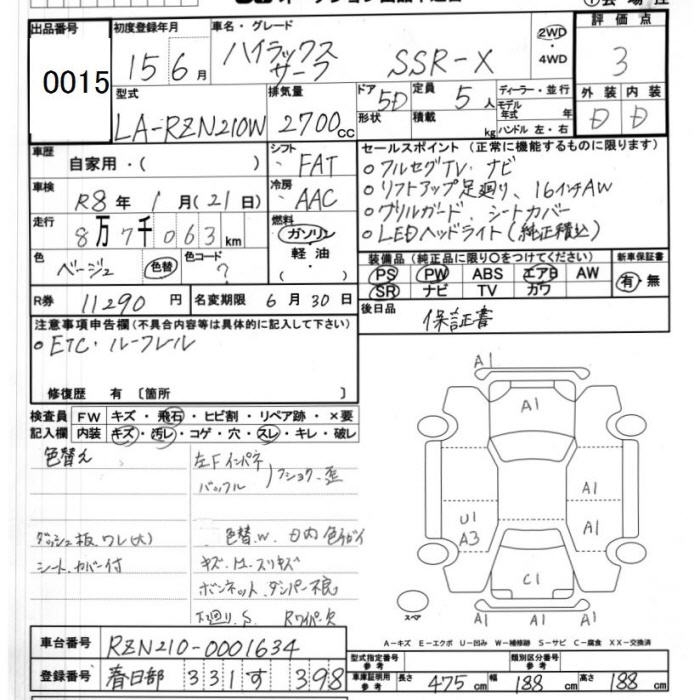 出品番号 初度登録年月 車名・グレード 2WD 評価点
0015 15 6月 ハイラックス サーフ SSR-X ・4WD 3
型式 排気量 ドア 5D 定員 5人 ディーラー・並行 外装 内装
LA-RZN210W 2700cc 形状 積載 kg モデル年式 年 D D
ハンドル 左・右
車歴 自家用・( ) シフト FAT セールスポイント (正常に機能するものに限ります)
○フルセグTV、ナビ
車検 R8年 1月(21日) 冷房 AAC ○リフトアップ足廻り、16インチAW
○グリルガード、シートカバー
走行 8万7千063km 燃料 ガソリン 軽油 ( ) ○LEDヘッドライト(純正積込)
色 ベージュ 色替 色コード ? 装備品 (純正品に限り○をつけてください) 新車保証書
PS PW ABS エアB AW 有・無
SR ナビ TV カワ
R券 11290円 名変期限 6月30日 後日品 保証書
注意事項申告欄 (不具合内容等は具体的に記入して下さい)
○ETC・ルーフレル
修復歴 有 〔箇所 〕
検査員 FW キズ・飛石・ヒビ割・リペア跡・×要
記入欄 内装 キズ・汚レ・コゲ・穴・スレ・キレ・破レ
色替え 左Fインパネ
バッフル
ダッシュ板、ワレ(大) 色替W.
シート、カバー付 キズ
ボンネット、ダンパー不良
下廻り、S Rワイパー欠
A1
A1
A1
U1 A3 A1
C1
A1 A1 A1
スペア
A-キズ E-エクボ U-凹み W-補修跡 S-サビ C-腐食 XX-交換済
車台番号 RZN210-0001634 型式指定番号 参考 類別区分番号 参考
登録番号 春日部 331 す 398 車庫証明用 参考 長さ 475cm 幅 188cm 高さ 188cm